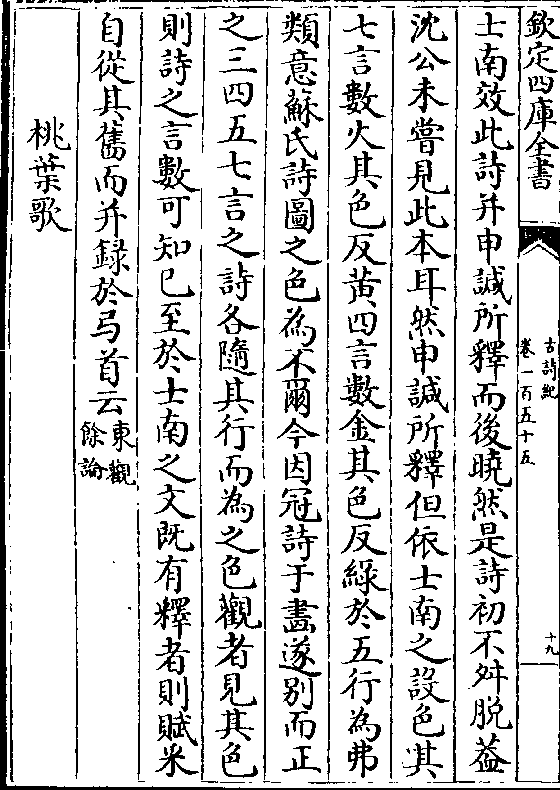 欽定四庫全書
古詩紀
卷一百五十五
十九
士南效此詩并申諴所釋而後曉然是詩初不舛脫葢
沈公未嘗見此本耳然申諴所釋但依士南之設色其
七言數火其色反黄四言數金其色反綠於五行為弗
類意蘇氏詩圖之色為不爾今因冠詩于畫遂别而正
之三四五七言之詩各隨其行而為之色觀者見其色
則詩之言數可知已至於士南之文既有釋者則賦采
自從其舊而并録於弓首云東觀
餘論
桃葉歌